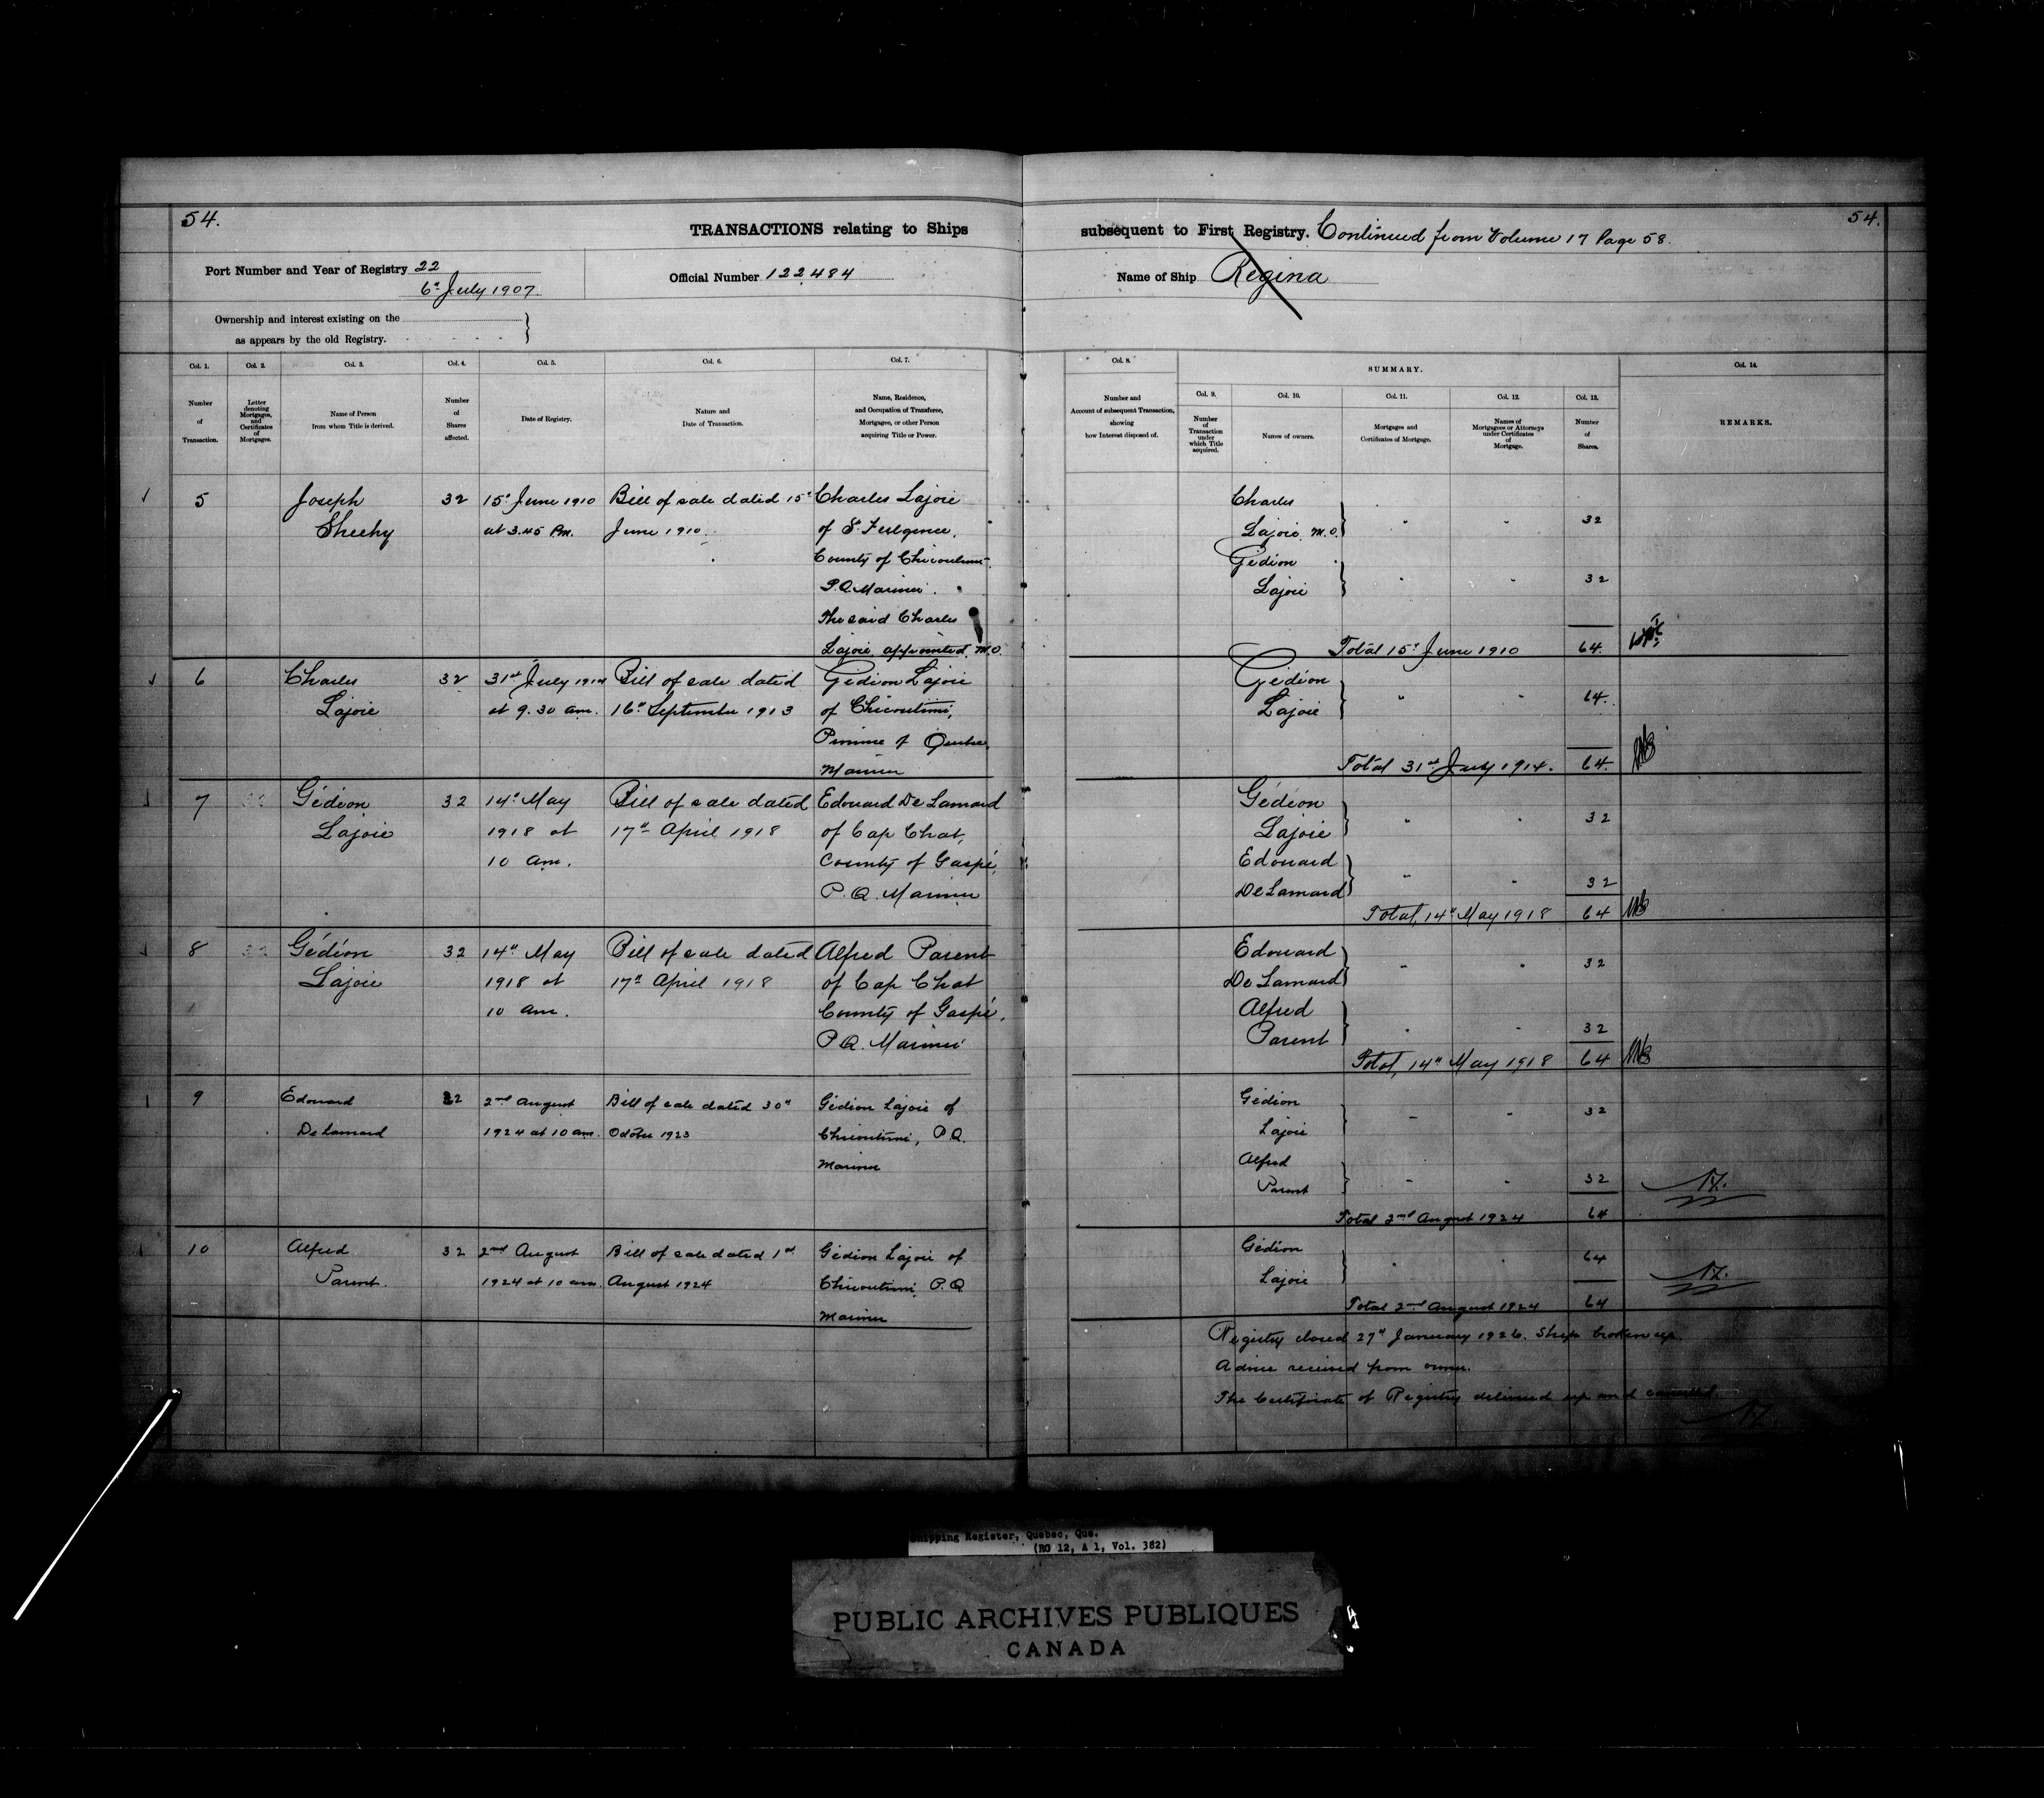 54.
TRANSACTIONS relating to Ships
subsequent to First Registry. Continued from Volume 17 Page 58.
54.
Port Number and Year of Registry 22
6th July 1907
Official Number 122,484
Name of Ship Regina
Ownership and interest existing on the
as appears by the old Registry.
Col. 1.
Number
of
Transaction.
Col. 2.
Letter
denoting
Mortgages,
and
Certificates
of
Mortgages.
Col. 3.
Name of Person
from whom Title is derived.
Col. 4.
Number
of
Shares
affected.
Col. 5.
Date of Registry.
Col. 6.
Nature and
Date of Transaction.
Col. 7.
Name, Residence,
and Occupation of Transferee,
Mortgagee, or other Person
acquiring Title or Power.
Col. 8.
Number and
Account of subsequent Transaction,
showing
how Interest disposed of.
SUMMARY.
Col. 9.
Number
of
Transaction
under
which Title
acquired.
Col. 10.
Names of owners.
Col. 11.
Mortgages and
Certificates of Mortgage.
Col. 12.
Names of
Mortgagees or Attorneys
under Certificates
of
Mortgage.
Col. 13.
Number
of
Shares.
Col. 14.
REMARKS.
5
Joseph
Sheehy
32
15th June 1910
at 3.45 Pm.
Bill of sale dated 15th
June 1910.
Charles Lajoie
of St Fulgence,
County of Chicoutimi
P.Q. Mariner.
The said Charles
Lajoie appointed M.O.
Charles
Lajoie, M.O.
32
Gédion
Lajoie
32
Total 15th June 1910
64.
6
Charles
Lajoie
32
31st July 1914
at 9.30 am.
Bill of sale dated
16th September 1913
Gédion Lajoie
of Chicoutimi,
Province of Quebec,
Mariner
Gédion
Lajoie
64.
Total 31st July 1914.
64.
7
Gédéon
Lajoie
32
14th May
1918 at
10 am.
Bill of sale dated
17th April 1918
Edouard De Lamard
of Cap Chat,
County of Gaspé,
P.Q. Mariner
Gédéon
Lajoie
32
Edouard
DeLamard
32
Total, 14th May 1918
64
8
Gédéon
Lajoie
32
14th May
1918 at
10 am.
Bill of sale dated
17th April 1918
Alfred Parent
of Cap Chat
County of Gaspé,
P.Q. Mariner
Edouard
De Lamard
32
Alfred
Parent
32
Total, 14th May 1918
64
9
Edouard
DeLamard
32
2nd August
1924 at 10 am.
Bill of sale dated 30th
October 1923
Gédion Lajoie of
Chicoutimi, P.Q.
Mariner
Gédion
Lajoie
32
Alfred
Parent
32
Total 2nd August 1924
64
10
Alfred
Parent.
32
2nd August
1924 at 10 am.
Bill of sale dated 1st
August 1924
Gédion Lajoie of
Chicoutimi, P.Q.
Mariner
Gédion
Lajoie
64
Total 2nd August 1924
64
Registry closed 27th January 1926. Ship broken up.
Advice received from owner.
The Certificate of Registry delivered up and cancelled
Shipping Register, Quebec, Que.
(RG 12, A 1, Vol. 382)
PUBLIC ARCHIVES PUBLIQUES
CANADA